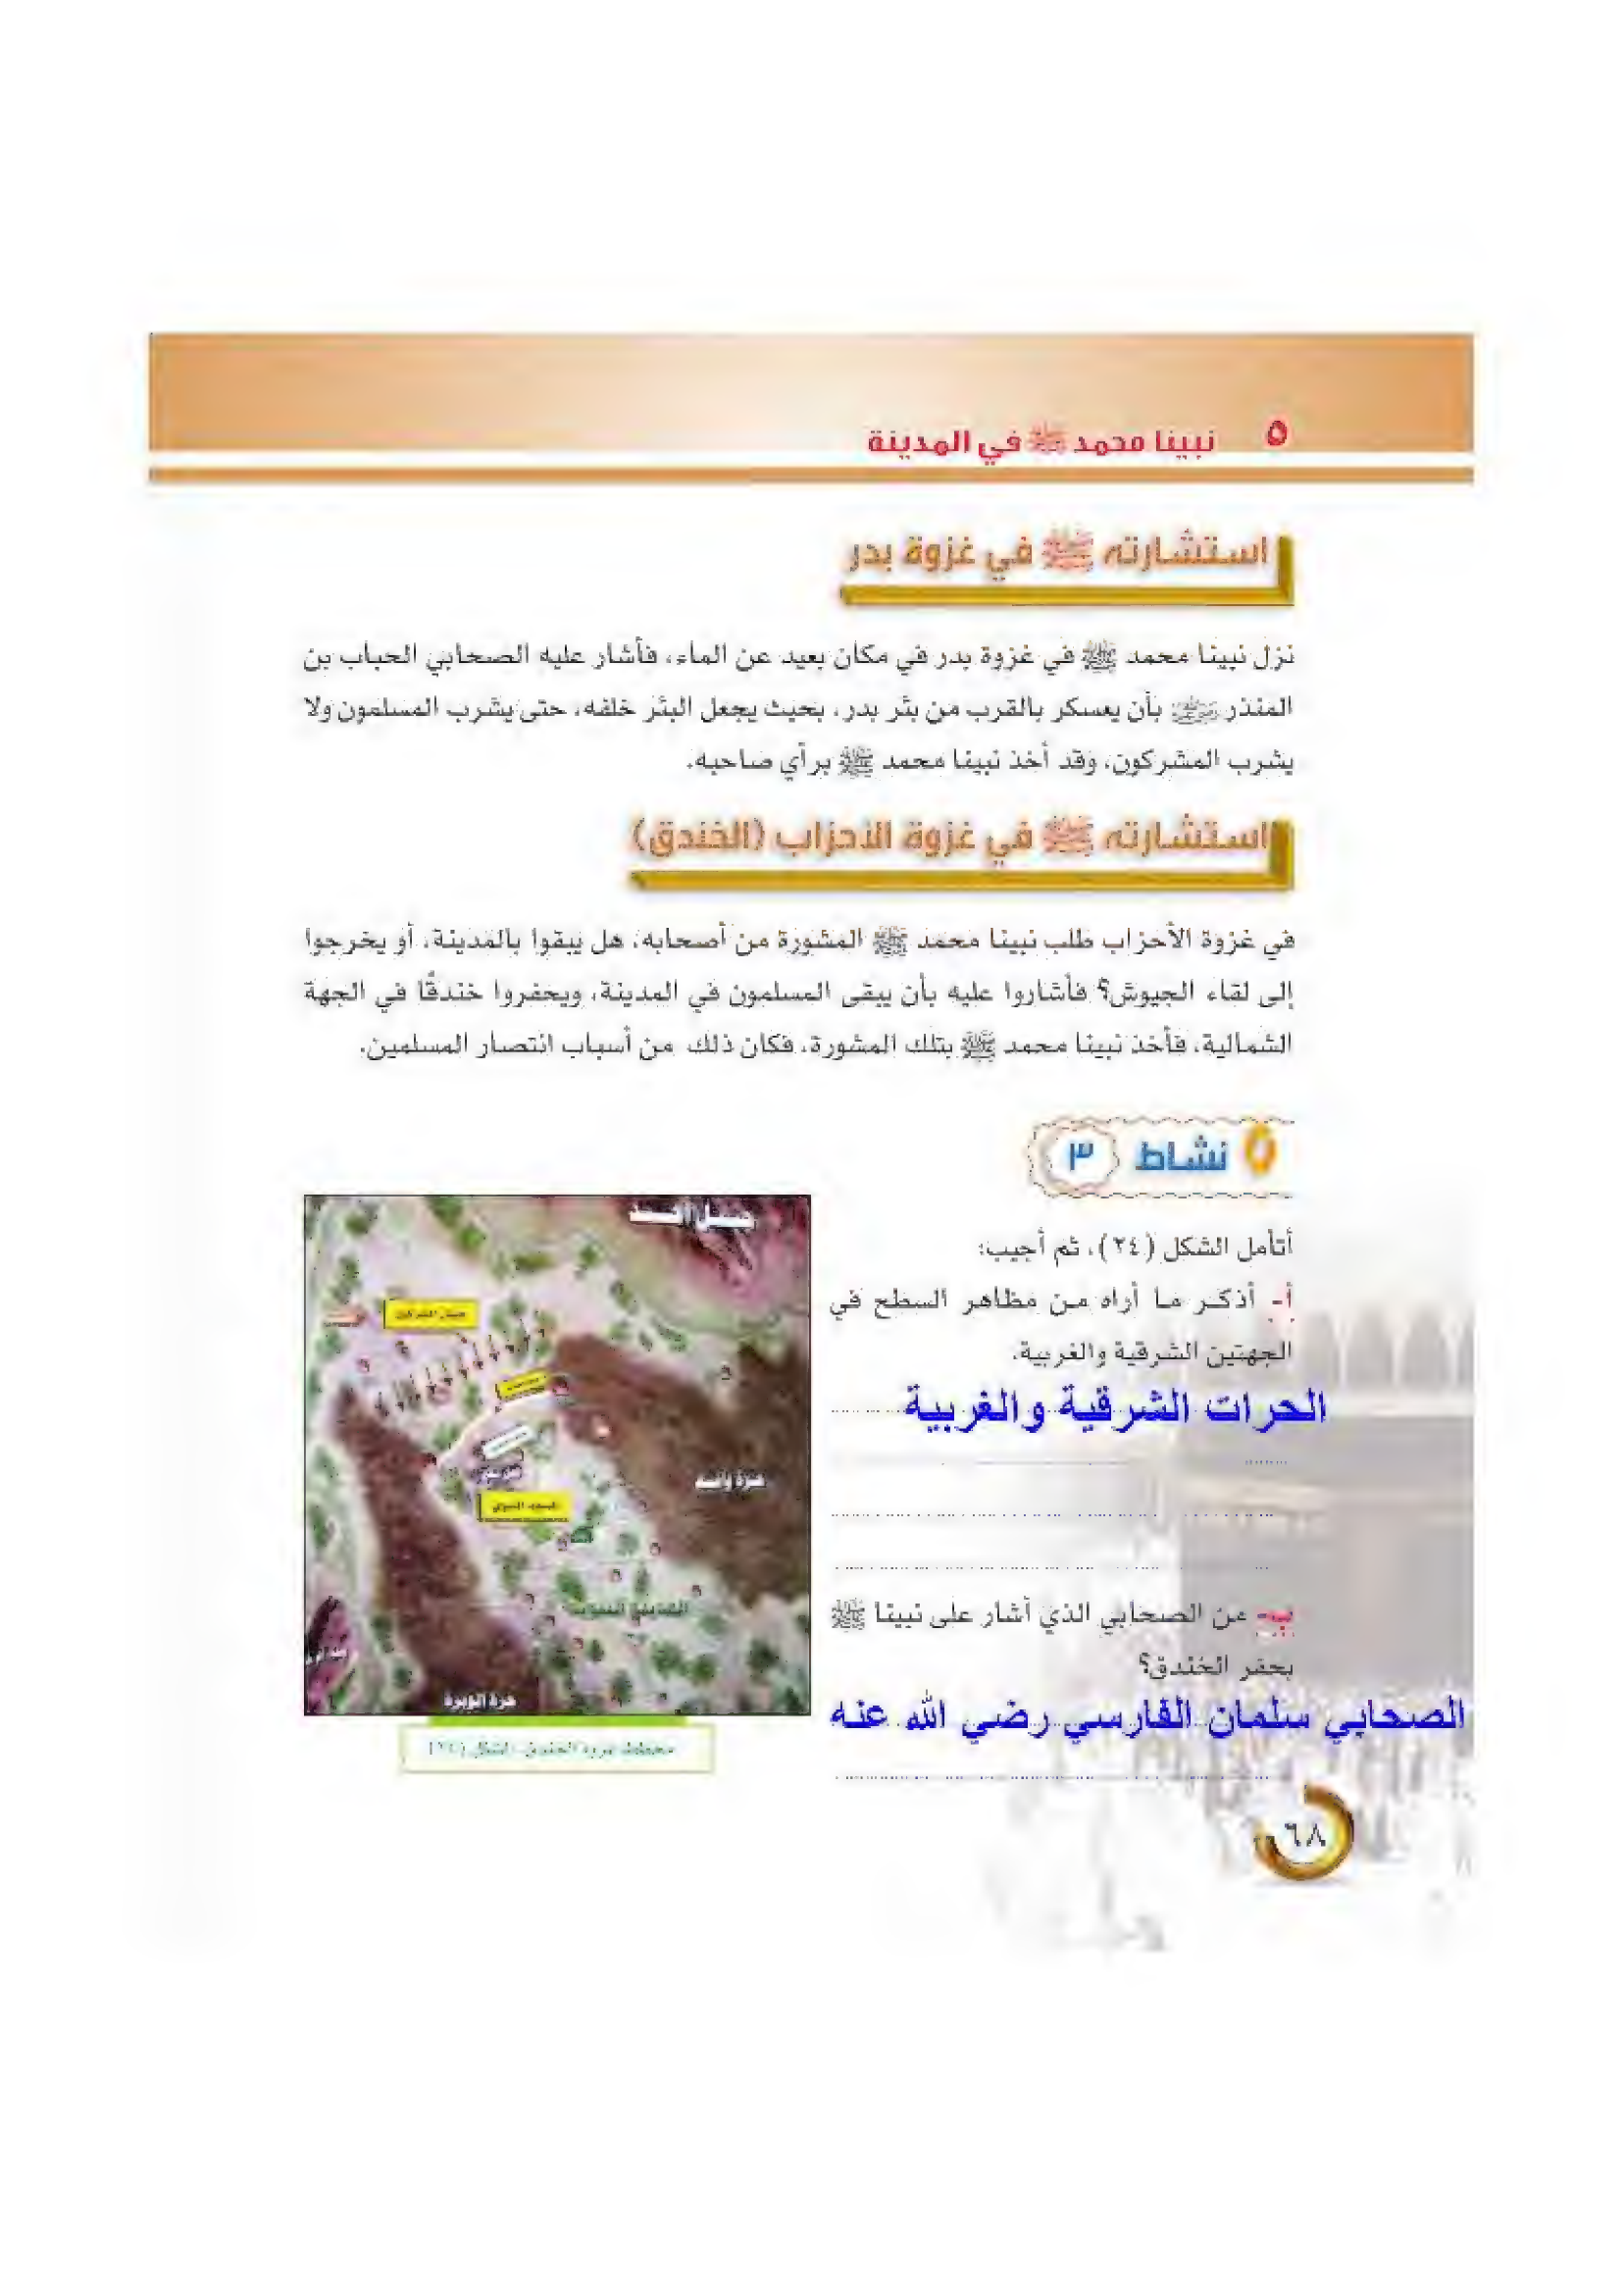 ٥ نبينا محمد ﷺ في المدينة
استشارته ﷺ في غزوة بدر
نزل نبينا محمد ﷺ في غزوة بدر في مكان بعيد عن الماء، فأشار عليه الصحابي الحباب بن
المنذر رضي الله عنه بأن يعسكر بالقرب من بئر بدر، بحيث يجعل البئر خلفه، حتى يشرب المسلمون ولا
يشرب المشركون، وقد أخذ نبينا محمد ﷺ برأي صاحبه.
استشارته ﷺ في غزوة الأحزاب (الخندق)
في غزوة الأحزاب طلب نبينا محمد ﷺ المشورة من أصحابه، هل يبقوا بالمدينة، أو يخرجوا
إلى لقاء الجيوش؟ فأشاروا عليه بأن يبقى المسلمون في المدينة، ويحفروا خندقًا في الجهة
الشمالية، فأخذ نبينا محمد ﷺ بتلك المشورة، فكان ذلك من أسباب انتصار المسلمين.
نشاط ٣
أتأمل الشكل (٢٤)، ثم أجيب:
أ- أذكر ما أراه من مظاهر السطح في
الجهتين الشرقية والغربية.
الحرات الشرقية والغربية
ب- من الصحابي الذي أشار على نبينا ﷺ
بحفر الخندق؟
الصحابي سلمان الفارسي رضي الله عنه
جبل أحد
حرة واقم
المسجد النبوي
المدينة النبوية
حرة الوبرة
مخطط غزوة الخندق - الشكل (٢٤)
٦٨